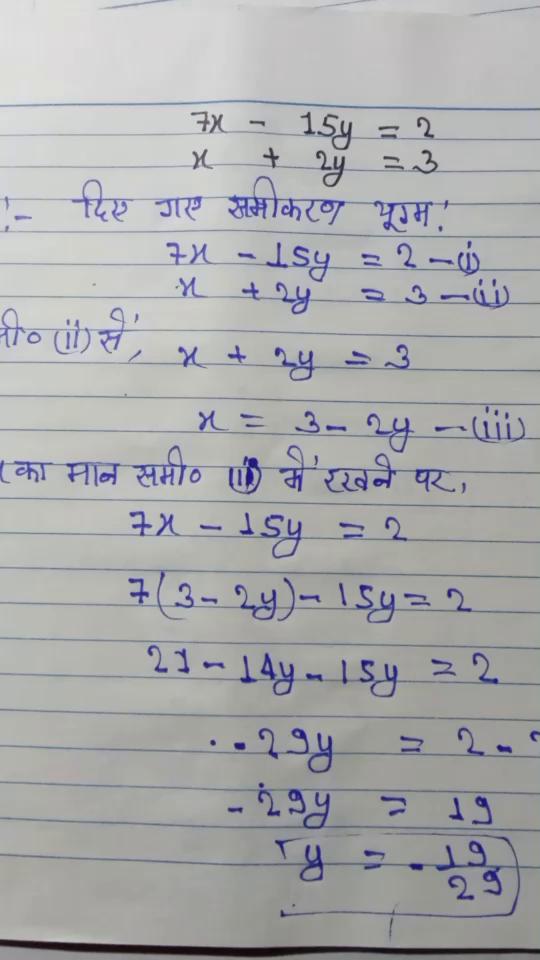 7x - 15y = 2
x + 2y = 3
:- दिए गए समीकरण युग्म:
7x - 15y = 2 -(i)
x + 2y = 3 -(ii)
मी० (ii) से,
x + 2y = 3
x = 3 - 2y -(iii)
का मान समी० में रखने पर,
7x - 15y = 2
7(3 - 2y) - 15y = 2
21 - 14y - 15y = 2
- 29y = 2 -
- 29y = 19
y = - 19/29